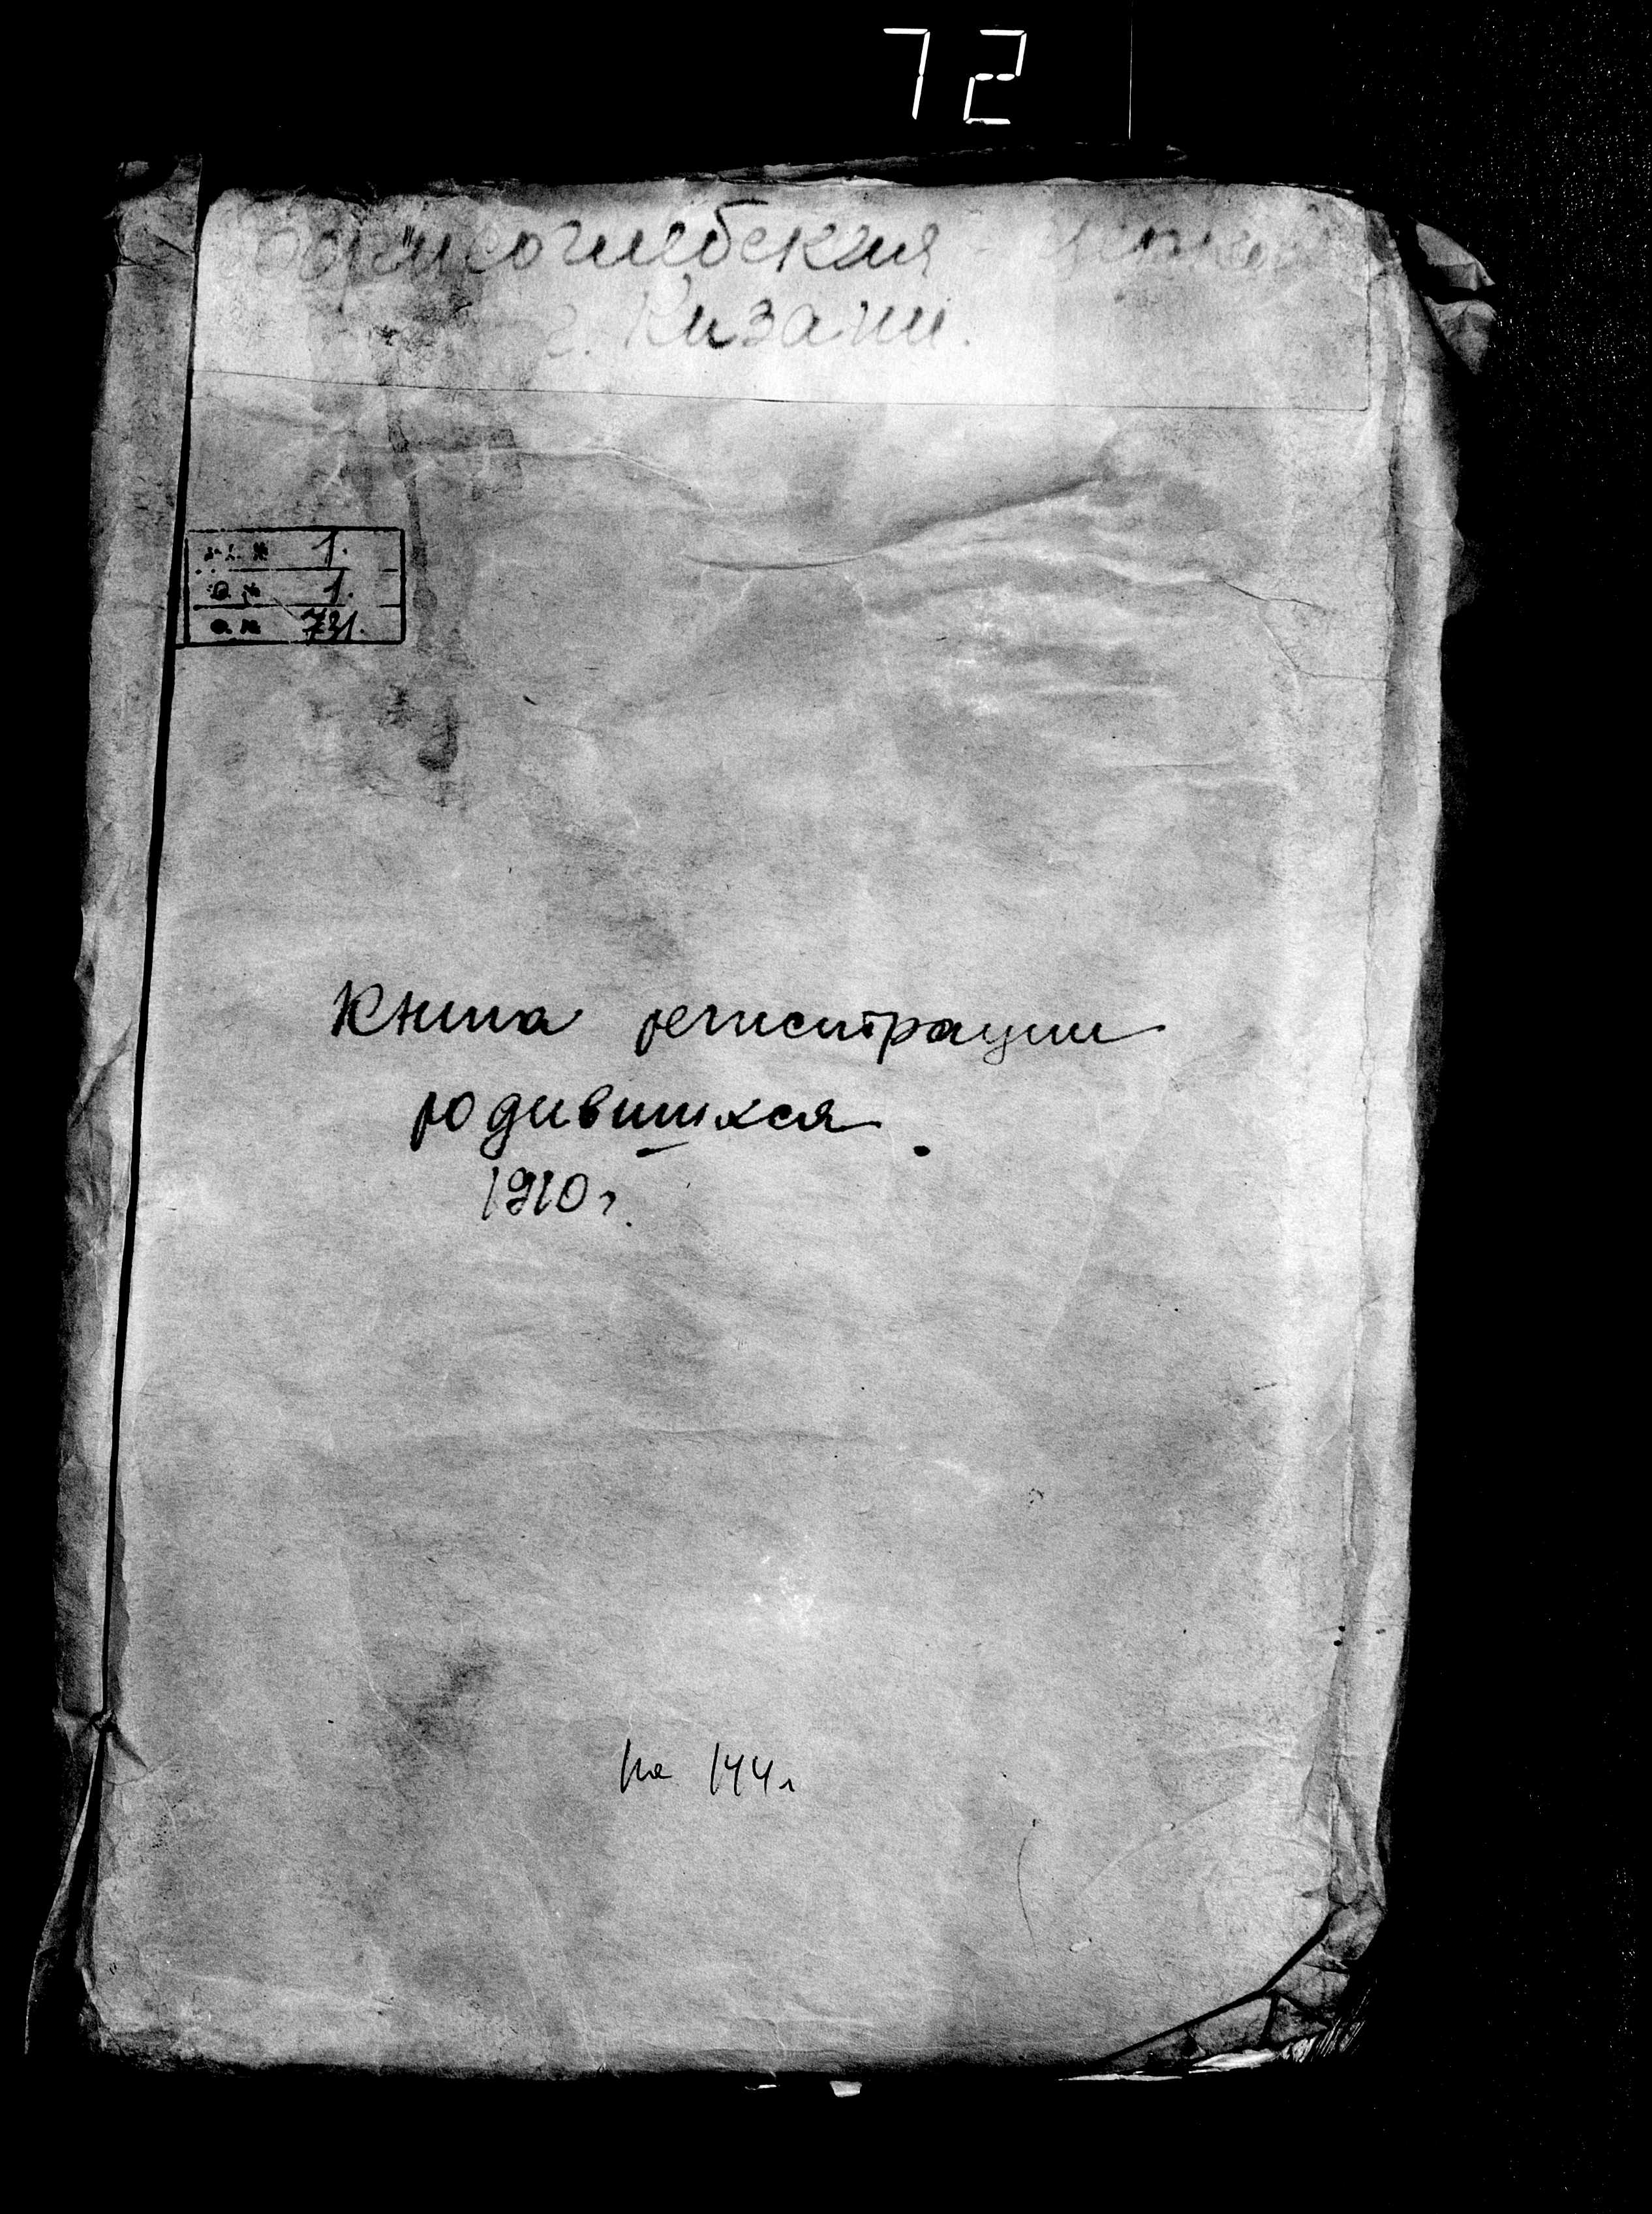 72
Борисоглебская церковь
г. Казани.
1.
1.
731.
Книга регистрации
родившихся.
1910 г.
На 144 л